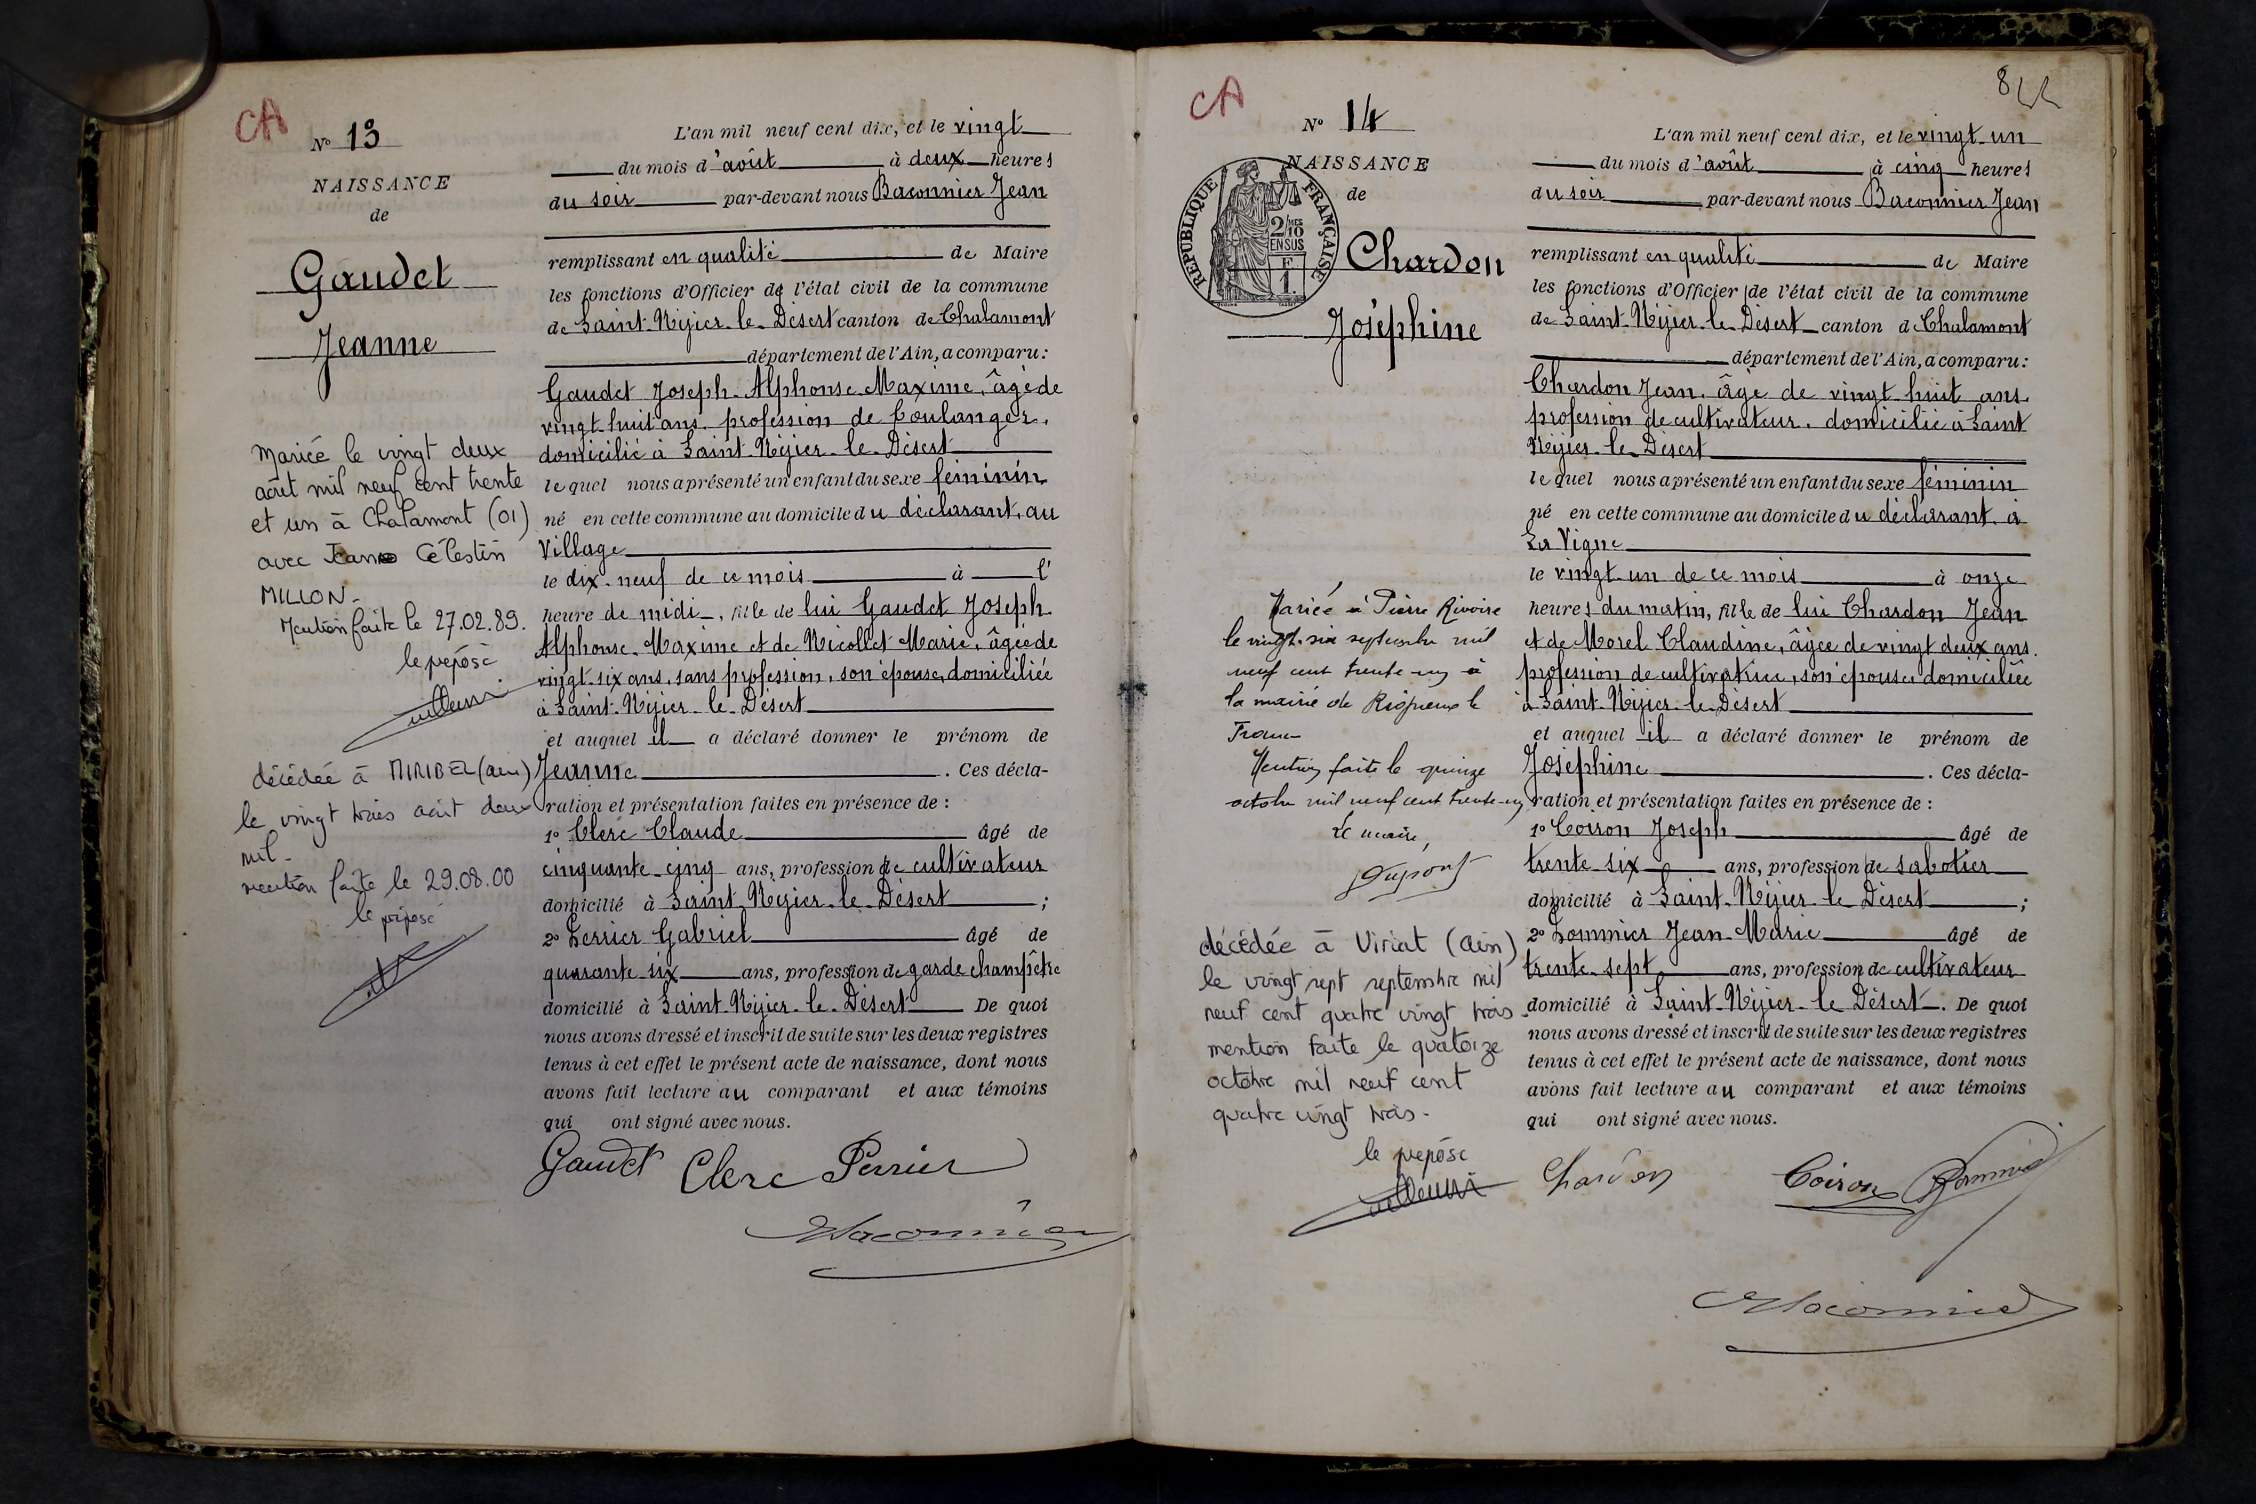 CA
N° 13
NAISSANCE
de
Gaudet
Jeanne
Mariée le vingt deux
août mil neuf cent trente
et un à Chalamont (01)
avec Jean Célestin
MILLON.
Mention faite le 27.02.89.
le préposé
décédée à MIRIBEL (ain)
le vingt trois août deux
mil.
mention faite le 29.08.00
le préposé
L'an mil neuf cent dix, et le vingt
du mois d'août à deux heures
du soir par-devant nous Baconnier Jean
remplissant en qualité de Maire
les fonctions d'Officier de l'état civil de la commune
de Saint-Nizier-le-Désert canton de Chalamont
département de l'Ain, a comparu:
Gaudet Joseph-Alphonse-Maxime, âgé de
vingt huit ans profession de boulanger,
domicilié à Saint-Nizier-le-Désert
lequel nous a présenté un enfant du sexe féminin
né en cette commune au domicile du déclarant, au
Village
le dix-neuf de ce mois à l'
heure de midi, fille de lui Gaudet Joseph
Alphonse-Maxime et de Nicollet Marie, âgée de
vingt-six ans, sans profession, son épouse, domiciliée
à Saint-Nizier-le-Désert
et auquel il a déclaré donner le prénom de
Jeanne. Ces décla-
ration et présentation faites en présence de :
1° Clerc Claude âgé de
cinquante-cinq ans, profession de cultivateur
domicilié à Saint-Nizier-le-Désert ;
2° Perrier Gabriel âgé de
quarante-six ans, profession de garde champêtre
domicilié à Saint-Nizier-le-Désert De quoi
nous avons dressé et inscrit de suite sur les deux registres
tenus à cet effet le présent acte de naissance, dont nous
avons fait lecture au comparant et aux témoins
qui ont signé avec nous.
Gaudet Clerc Perrier
Baconnier
CA
N° 14
NAISSANCE
de
RÉPUBLIQUE FRANÇAISE
2/10 MES
EN SUS
F
1.
Chardon
Joséphine
Mariée à Pierre Rivoire
le vingt-six septembre mil
neuf cent trente-un à
la mairie de Rignieux le
Franc
Mention faite le quinze
octobre mil neuf cent trente-un
Le maire,
Dupont
décédée à Viriat (ain)
le vingt sept septembre mil
neuf cent quatre vingt trois.
mention faite le quatorze
octobre mil neuf cent
quatre vingt trois.
le préposé
L'an mil neuf cent dix, et le vingt-un
du mois d'août à cinq heures
du soir par-devant nous Baconnier Jean
remplissant en qualité de Maire
les fonctions d'Officier de l'état civil de la commune
de Saint-Nizier-le-Désert canton d Chalamont
département de l'Ain, a comparu:
Chardon Jean, âgé de vingt-huit ans
profession de cultivateur, domicilié à Saint
Nizier-le-Désert
lequel nous a présenté un enfant du sexe féminin
né en cette commune au domicile du déclarant, à
La Vigne
le vingt-un de ce mois à onze
heures du matin, fille de lui Chardon Jean
et de Morel Claudine, âgée de vingt deux ans.
profession de cultivatrice, son épouse, domiciliée
à Saint-Nizier-le-Désert
et auquel il a déclaré donner le prénom de
Joséphine. Ces décla-
ration et présentation faites en présence de :
1° Coiron Joseph âgé de
trente-six ans, profession de sabotier
domicilié à Saint-Nizier-le-Désert ;
2° Pommier Jean-Marie âgé de
trente-sept ans, profession de cultivateur
domicilié à Saint-Nizier-le-Désert. De quoi
nous avons dressé et inscrit de suite sur les deux registres
tenus à cet effet le présent acte de naissance, dont nous
avons fait lecture au comparant et aux témoins
qui ont signé avec nous.
Chardon Coiron Pommier
Baconnier